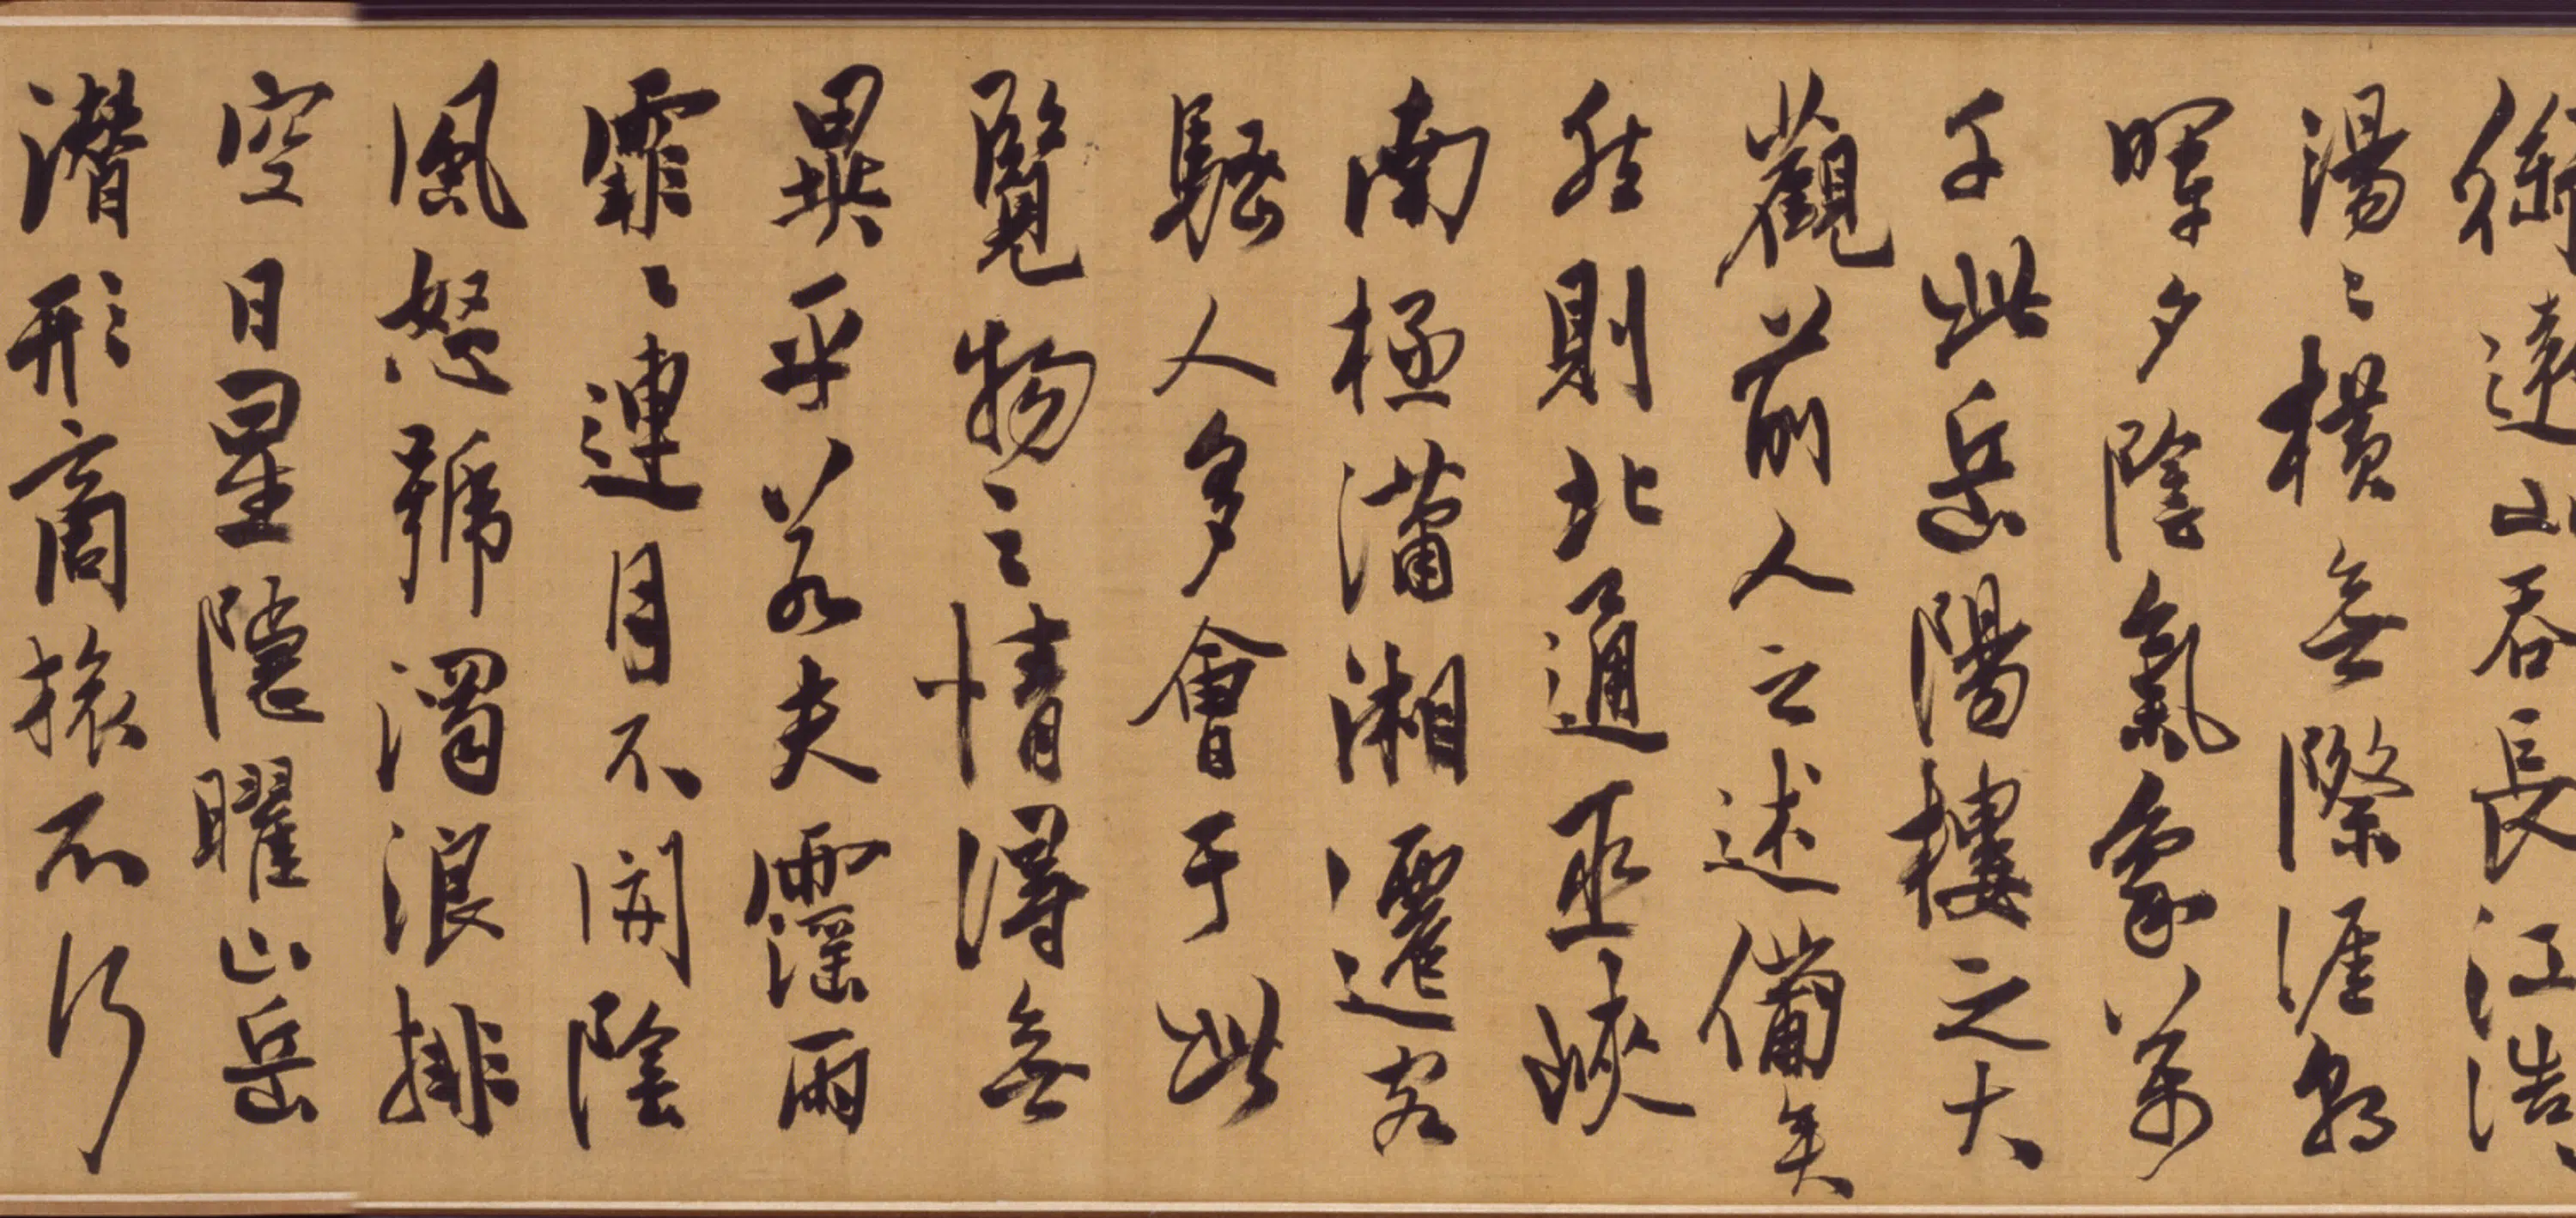 銜遠山吞長江浩〻
湯〻橫無際涯朝
暉夕陰氣象萬
千此岳陽樓之大
觀前人之述備矣
然則北通巫峽
南極瀟湘遷客
騷人多會于此
覽物之情得無
異乎若夫霪雨
霏〻連月不開陰
風怒號濁浪排
空日星隱曜山岳
潛形商旅不行